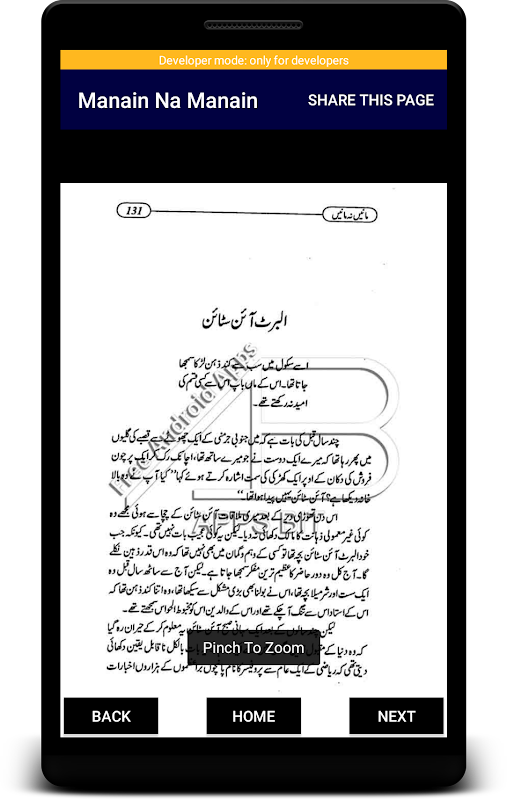 Developer mode: only for developers
Manain Na Manain
SHARE THIS PAGE
131
مانیں نہ مانیں
البرٹ آئن سٹائن
اسے سکول میں سب سے کند ذہن لڑکا سمجھا
جاتا تھا۔ اس کے ماں باپ اس سے کسی قسم کی
امید نہ رکھتے تھے۔
چند سال قبل کی بات ہے کہ میں جنوبی جرمنی کے ایک چھوٹے سے قصبے کی گلیوں
میں پھر رہا تھا کہ میرے ایک دوست نے جو میرے ساتھ تھا، اچانک رک کر ایک پرچون
فروش کی دکان کے اوپر ایک کھڑکی کی سمت اشارہ کرتے ہوئے کہا "کیا آپ نے وہ بالا
خانہ دیکھا ہے؟ آئن سٹائن یہیں پیدا ہوا تھا۔"
اس دن تھوڑی دیر کے بعد میری ملاقات آئن سٹائن کے چچا سے ہوئی مجھے وہ
کوئی غیر معمولی ذہانت کا مالک دکھائی نہ دیا۔ لیکن یہ کوئی عجیب بات نہیں تھی۔ کیونکہ جب
خود البرٹ آئن سٹائن بچہ تھا تو کسی کے وہم و گمان میں بھی نہیں تھا کہ وہ اس قدر ذہین نکلے
گا۔ آج کل وہ دور حاضر کا عظیم ترین مفکر سمجھا جاتا ہے۔ لیکن آج سے ساٹھ سال قبل وہ
ایک سست اور شرمیلا بچہ تھا، اس نے بولنا بھی بڑی مشکل سے سیکھا تھا، وہ اتنا کند ذہن تھا کہ
اس کے استاد اس سے تنگ آ چکے تھے اور اس کے والدین اس کو مخبوط الحواس سمجھتے تھے۔
لیکن چند سالوں کے بعد ایک سہانی صبح آئن سٹائن یہ معلوم کر کے حیران رہ گیا
کہ وہ دنیا کے بات بالکل ناقابل یقین دکھائی
دیتی تھی کہ ریاضی کے ایک عام سے پروفیسر کا نام پانچوں براعظموں کے ہزاروں اخبارات
Free Android Apps
APPS BIT
Pinch To Zoom
BACK
HOME
NEXT